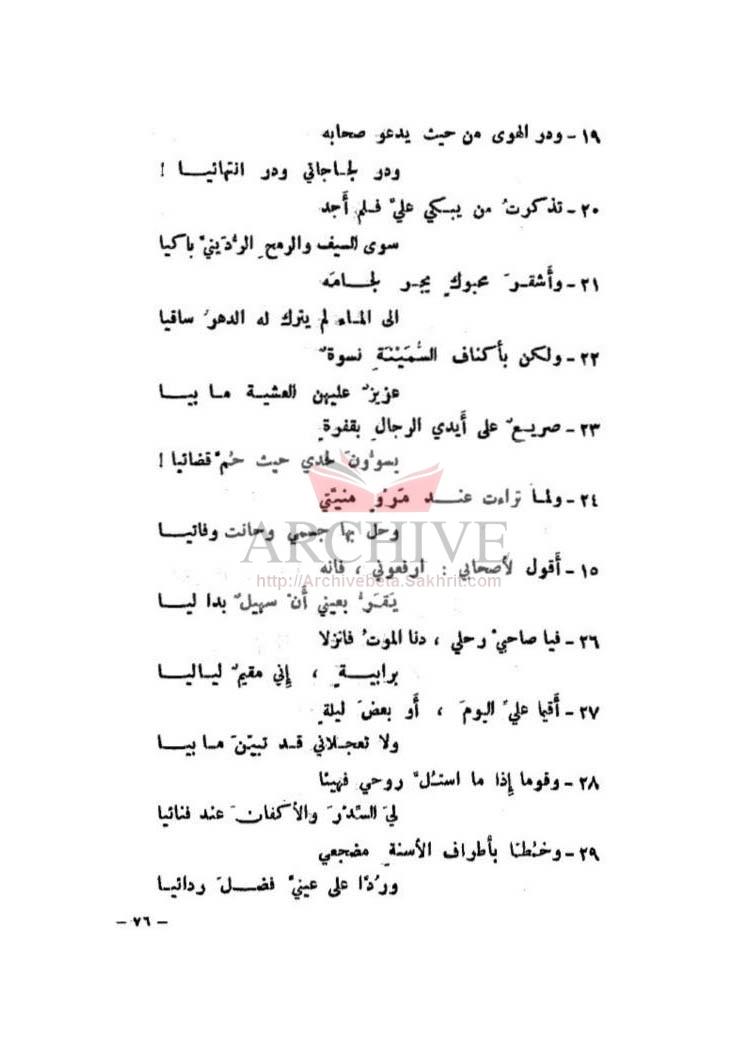 ١٩ - ودر الهوى من حيث يدعو صحابه
ودر لجاجاتي ودر انتهائيـــا !
٢٠ - تذكرتُ من يبـكي عليَّ فـلم أَجد
سوى السيف والرمحِ الرُّدَينيِّ باكيا
٢١ - وأَشقـرَ محبوكٍ يجـر لجـــامَه
الى المـاء لم يترك له الدهرُ ساقيا
٢٢ - ولكن بأكناف السُّمَيْنَةِ نسوةٌ
عزيزٌ عليهن العشيـة مـا بيـــا
٢٣ - صريـعٌ على أَيدي الرجالِ بقفرةٍ
يسوُّونَ لحدي حيث حُمَّ قضائيا !
٢٤ - ولمـا تراءت عنـــد مَروٍ منيتي
ARCHIVE
وحل بها جسمي وحانت وفاتيـا
١٥ - أَقول لأَصحابي : ارفعوني ، فانه
http://Archivebeta.Sakhrit.com
يَقَرُّ بعيني أَنْ سهيلٌ بدا ليـا
٢٦ - فيا صاحبيْ رحلي ، دنا الموتُ فانزلا
برابيـــةٍ ، إِني مقيمٌ ليـاليـــا
٢٧ - أَقيما عليَّ اليومَ ، أَو بعضَ ليلةٍ
ولا تعجـلاني قـد تبيّنَ مـا بيـــا
٢٨ - وقوما إِذا ما استُلَّ روحي فهيئا
ليَ السِّدْرَ والأكفانَ عند فنائيا
٢٩ - وخُطّـا بأطراف الأسنةِ مضجعي
ورُدّا على عينيَّ فضـــلَ ردائيـا
– ٧٦ –